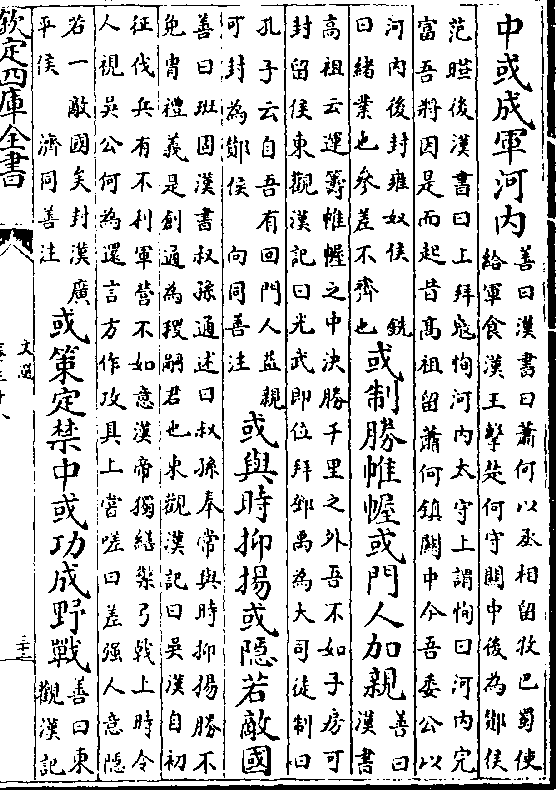 中或成軍河内
善曰漢書曰蕭何以丞相留收巴蜀使
給軍食漢王擊楚何守關中後為酇侯
范曄後漢書曰上拜寇恂河内太守上謂恂曰河内完
富吾將因是而起昔髙祖留蕭何鎮關中今吾委公以
河内後封雍奴侯　銑
曰緒業也參差不齊也
或制勝帷幄或門人加親
善曰
漢書
高祖云運籌帷幄之中決勝千里之外吾不如子房可
封留侯東觀漢記曰光武即位拜鄧禹為大司徒制曰
孔子云自吾有回門人益親
可封為酇侯　向同善注
或與時抑揚或隱若敵國
善曰班固漢書叔孫通述曰叔孫奉常與時抑揚勝不
免胄禮義是創通為稷嗣君也東觀漢記曰吳漢自初
征伐兵有不利軍營不如意漢帝獨繕檠弓戟上時令
人視吳公何為還言方作攻具上嘗嗟曰差强人意隱
若一敵國矣封漢廣
平侯　濟同善注
或策定禁中或功成野戰
善曰東
觀漢記
欽定四庫全書
文選